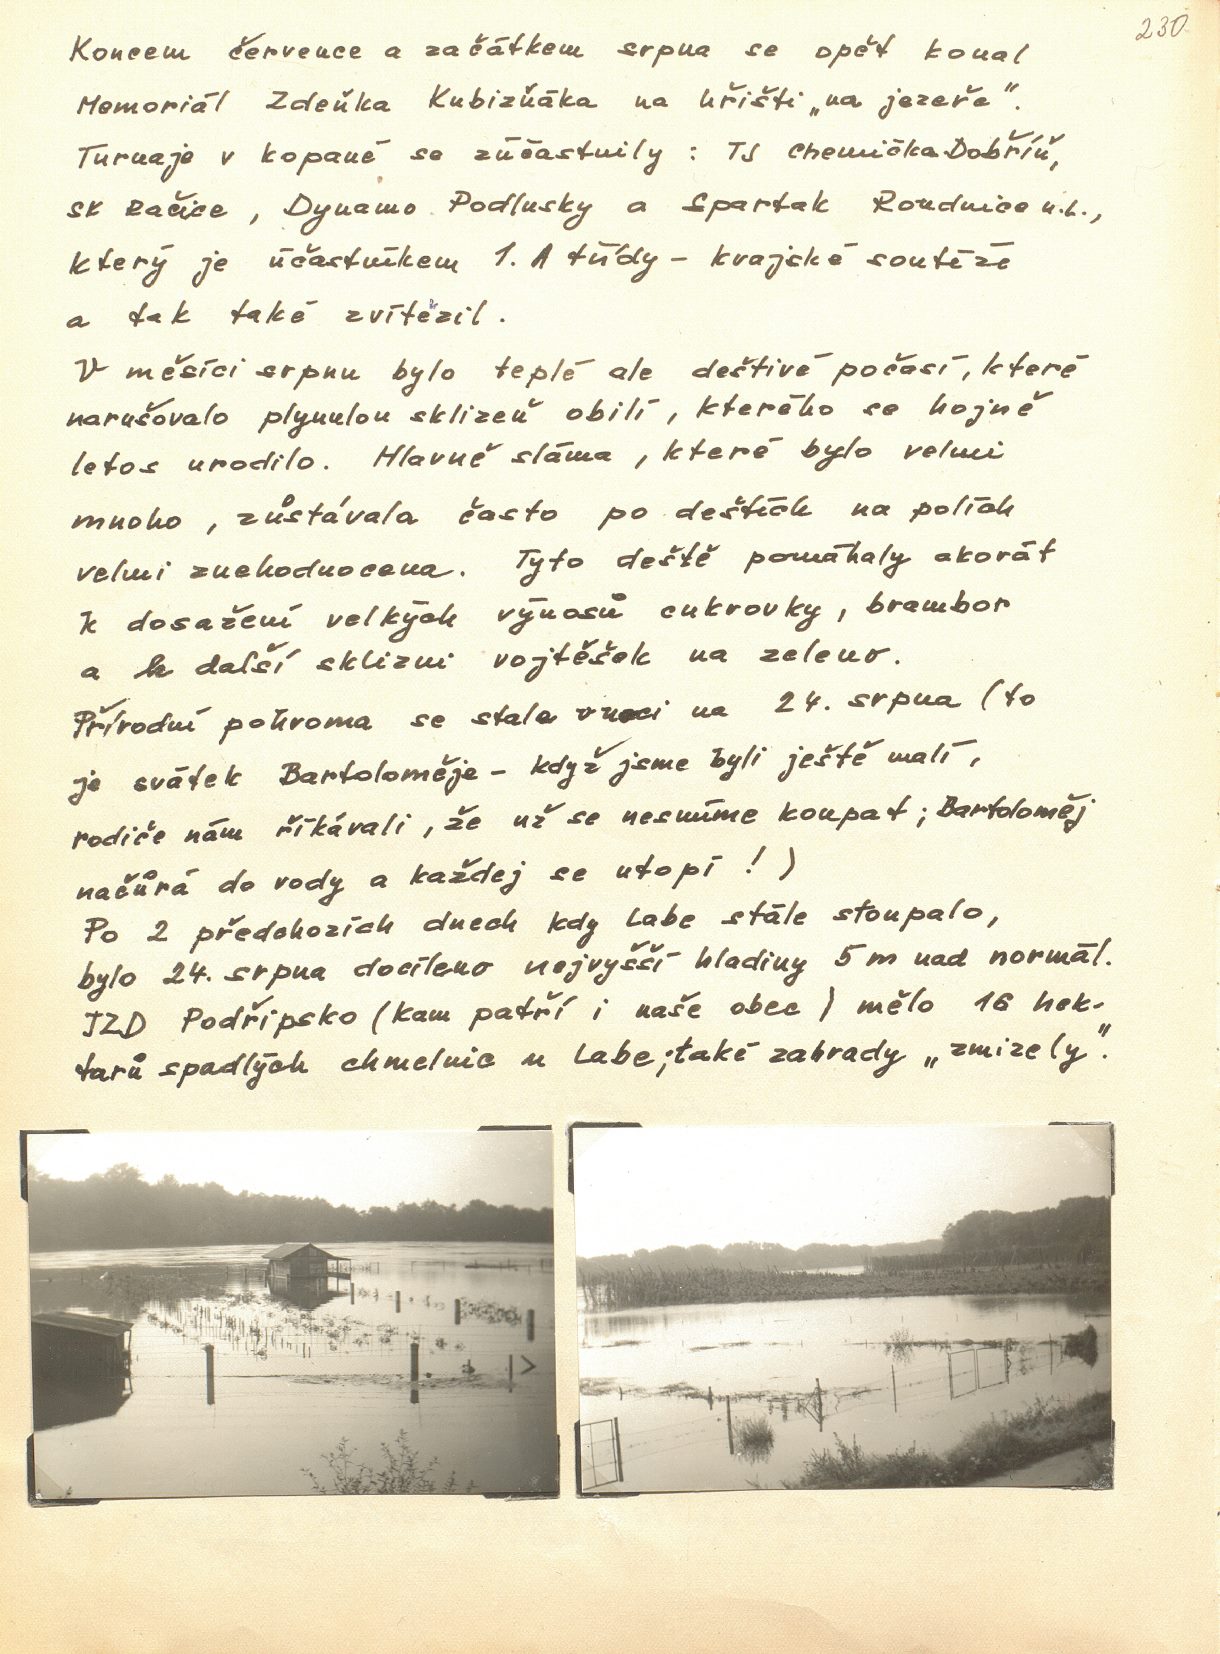 230
Koncem července a začátkem srpna se opět konal
Memoriál Zdeňka Kubizňáka na hřišti „na jezeře".
Turnaje v kopané se zúčastnily : TJ Chemička Dobříň,
SK Račice , Dynamo Podlusky a Spartak Roudnice n.L.,
který je účastníkem 1. A třídy - krajské soutěže
a tak také zvítězil .
V měsíci srpnu bylo teplé ale deštivé počasí , které
narušovalo plynulou sklizeň obilí , kterého se hojně
letos urodilo . Hlavně sláma , které bylo velmi
mnoho , zůstávala často po deštích na polích
velmi znehodnocena . Tyto deště pomáhaly akorát
k dosažení velkých výnosů cukrovky , brambor
a k další sklizni vojtěšek na zeleno .
Přírodní pohroma se stala v noci na 24. srpna ( to
je svátek Bartoloměje - když jsme byli ještě malí ,
rodiče nám říkávali , že už se nesmíme koupat ; Bartoloměj
načůrá do vody a každej se utopí ! )
Po 2 předchozích dnech kdy Labe stále stoupalo ,
bylo 24. srpna docíleno nejvyšší hladiny 5 m nad normál .
JZD Podřipsko ( kam patří i naše obec ) mělo 16 hek-
tarů spadlých chmelnic u Labe ; také zahrady „ zmizely ".